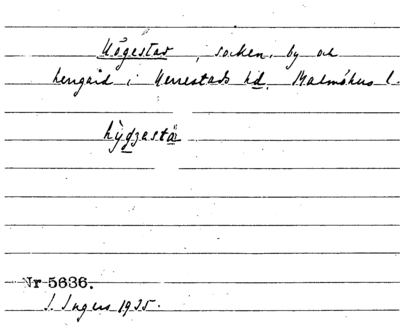 Högestad, socken, by och
herrgård i Herrestads hd. Malmöhus l.
Nr 5636.
I. Ingers 1925.